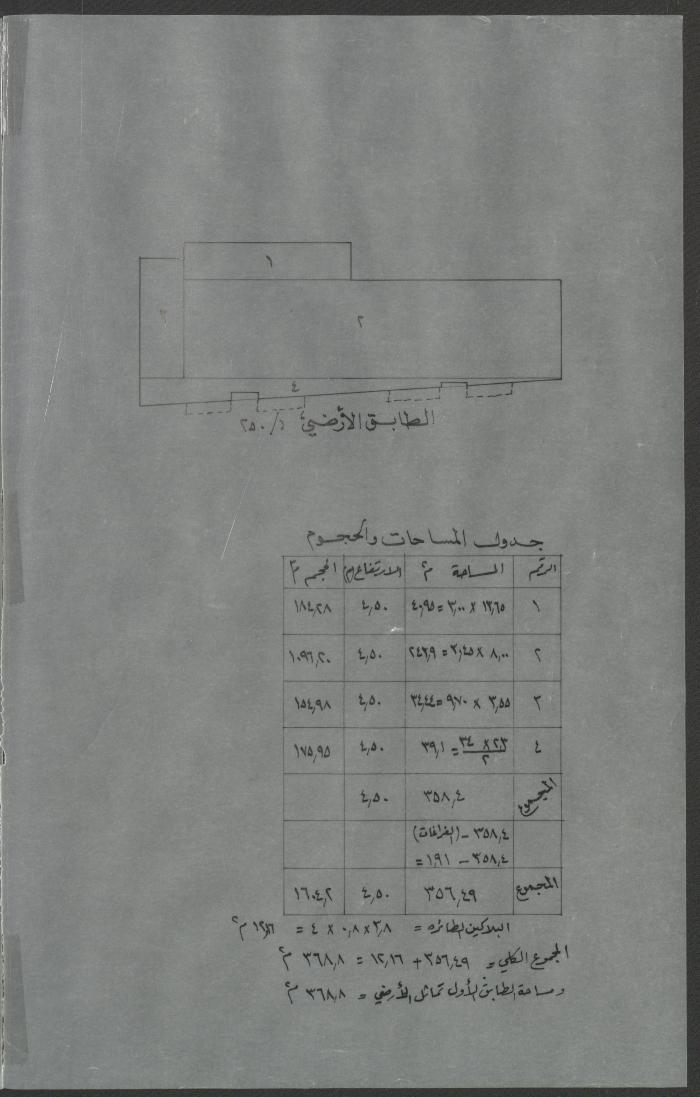 ١
٣
٢
٤
الطابق الأرضي ١/٢٥٠
جدول المساحات والحجوم
الرقم المساحة م٢ الارتفاع م الحجم م٣
١ ١٣,٦٥ × ٣,٠٠ = ٤٠,٩٥ ٤,٥٠ ١٨٤,٢٨
٢ ٢٤٣,٩ ٤,٥٠ ١٠٩٦,٢٠
٣ ٣,٥٥ × ٩,٧٠ = ٣٤,٤٤ ٤,٥٠ ١٥٤,٩٨
٤ ٢,٣ × ٣٤ / ٢ = ٣٩,١ ٤,٥٠ ١٧٥,٩٥
المجموع ٣٥٨,٤ ٤,٥٠
٣٥٨,٤ - (الفراغات)
٣٥٨,٤ - ١,٩١ =
المجموع ٣٥٦,٤٩ ٤,٥٠ ١٦٠٤,٢
البلاكين الطائره = ٣,٨ × ٠,٨ × ٤ = ١٢,١٦ م٢
المجموع الكلي = ٣٥٦,٤٩ + ١٢,١٦ = ٣٦٨,٨ م٢
ومساحة الطابق الأول تماثل الأرضي = ٣٦٨,٨ م٢